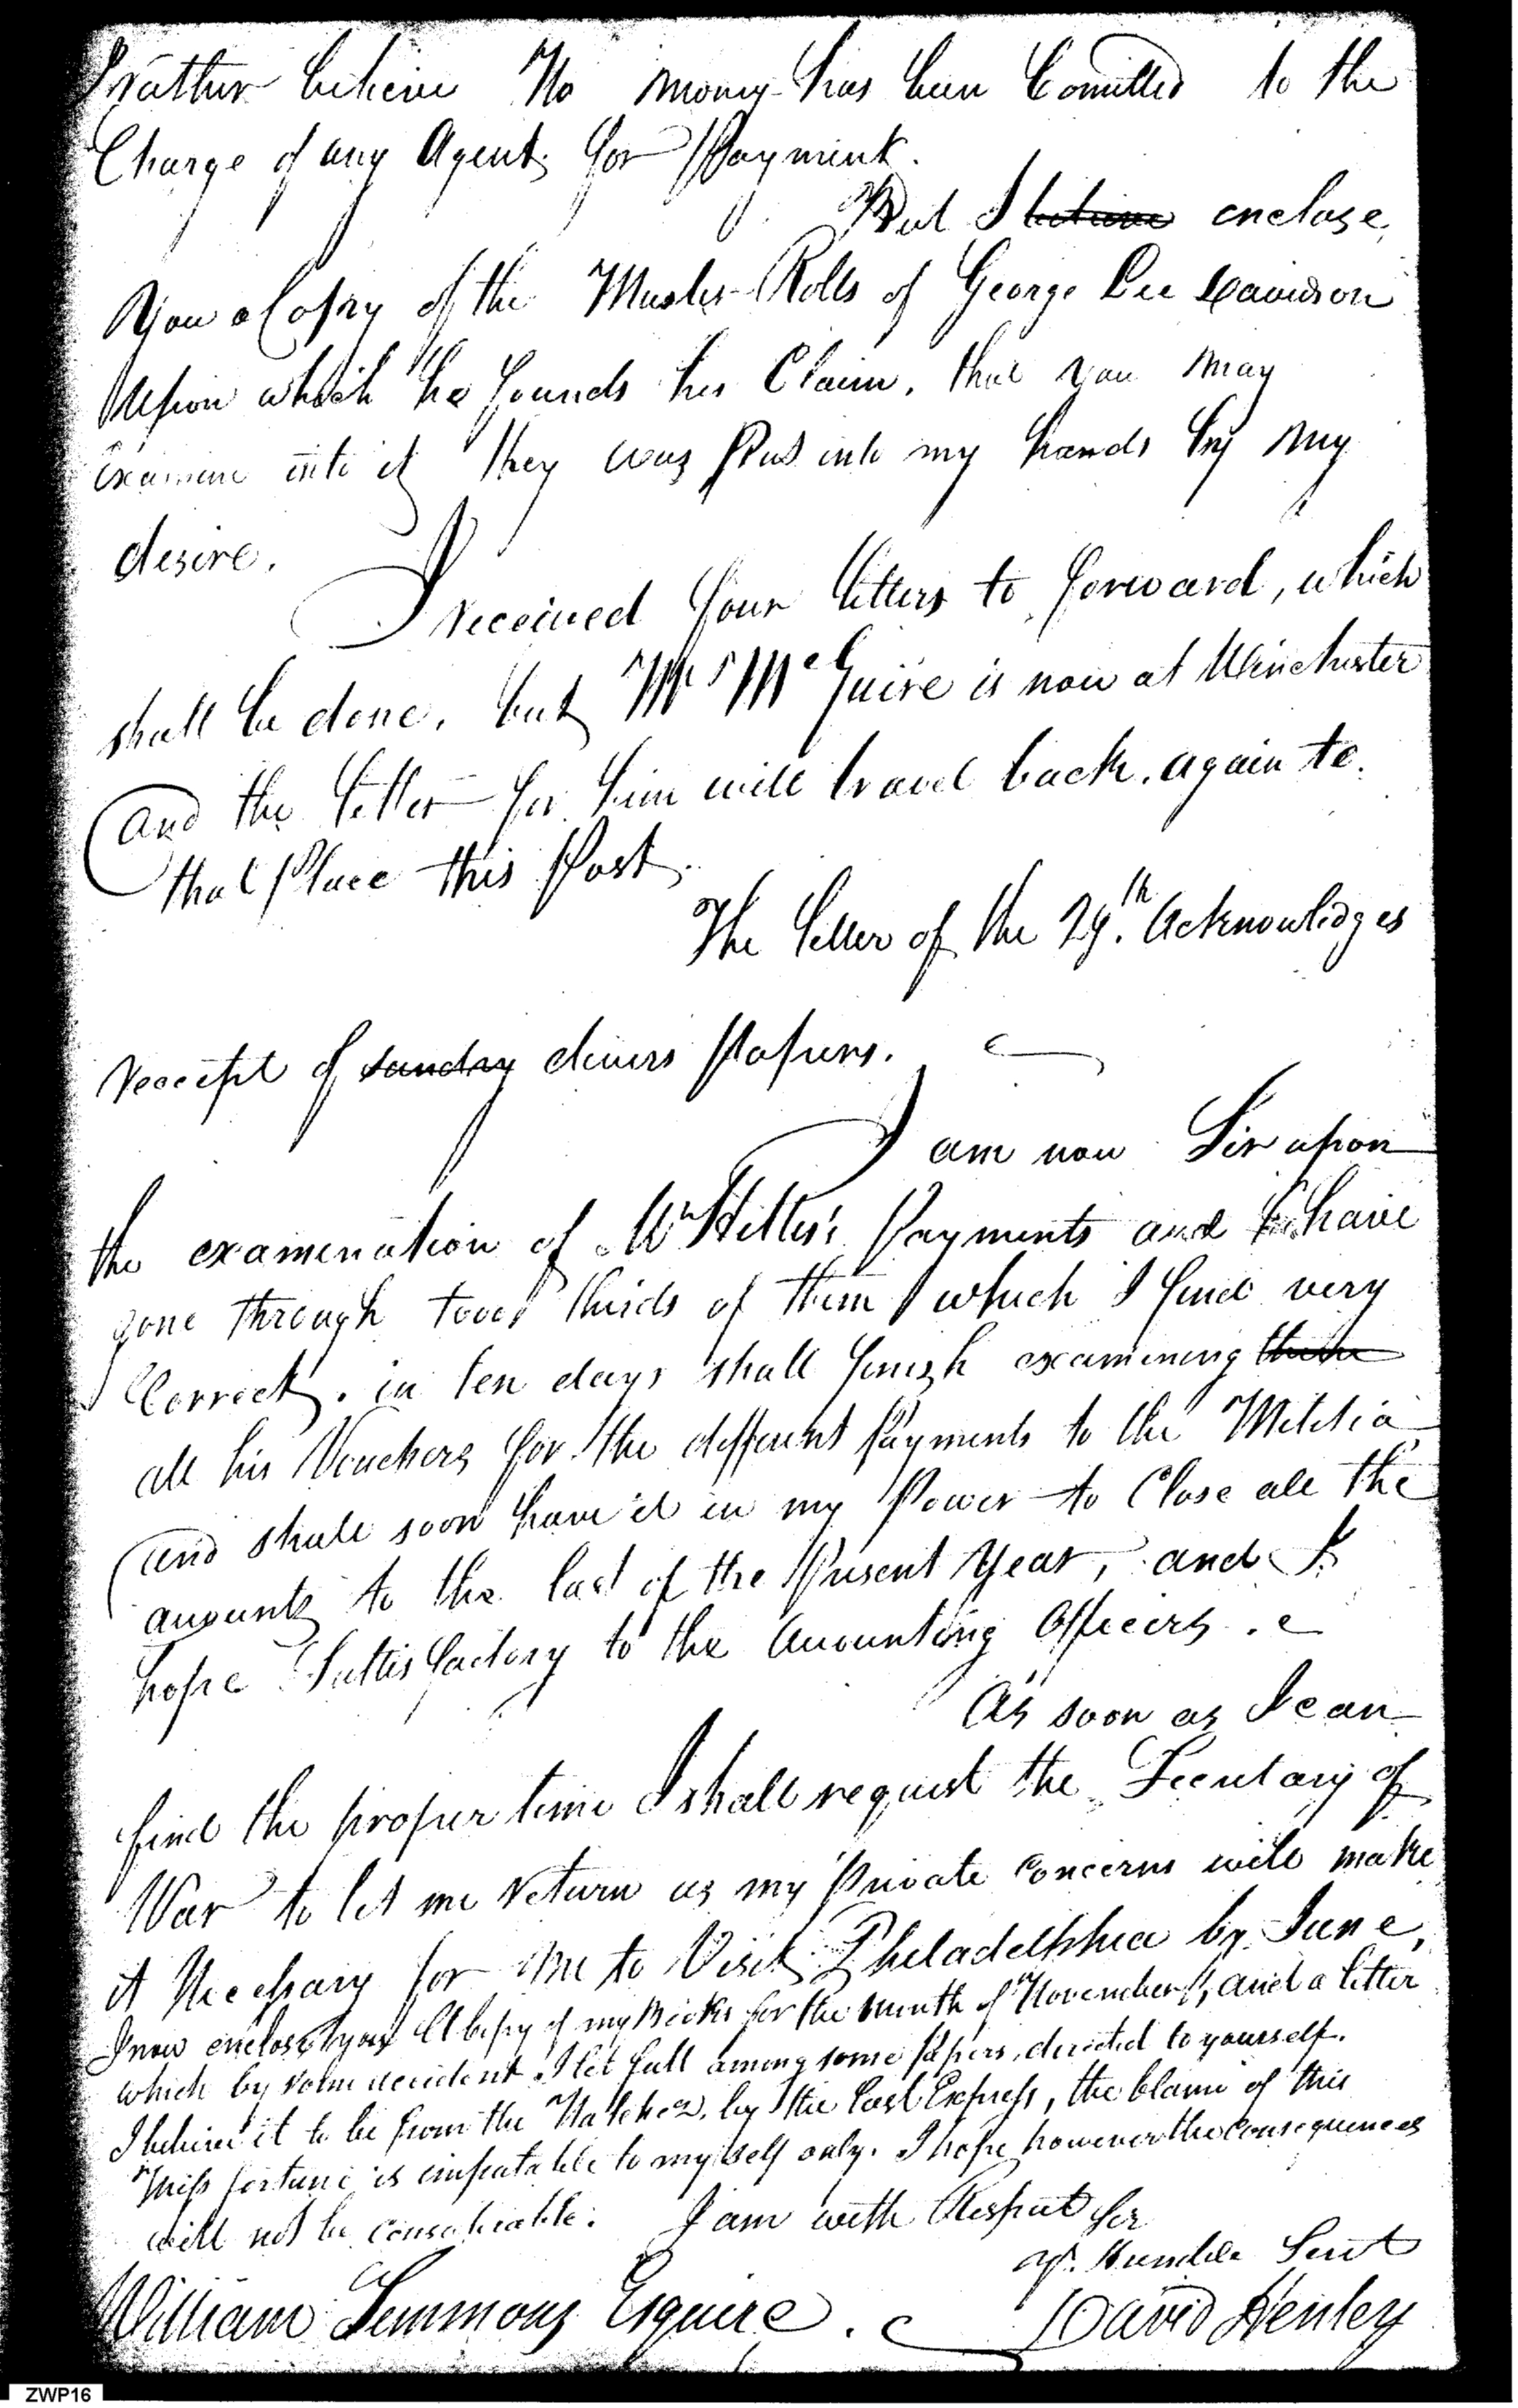 I rather believe No money has been Comitted to the
Charge of any Agent, for Payment.
But I believe enclose
You a Copy of the Muster Rolls of George Lee Davidson
Upon which he founds his Claim, that you may
examine into it they was Put into my hands by my
desire.
I received four letters to forward, which
shall be done, but Mr McGuire is now at Winchester
and the letter for him will travel back again to
that Place this Post.
The letter of the 29th Acknowledges
receipt of sunday divers Papers.
I am now Sir upon
the examination of Mr Payments and have
gone through two thirds of them which I find very
Correct. in ten days shall finish examining them
all his Vouchers for the different Payments to the Militia
and shall soon have it in my Power to Close all the
accounts to the last of the Present Year, and I
hope Sattisfactory to the Accounting Officers.
As soon as I can
find the proper time I shall request the Secretary of
War to let me return as my Private Concerns will make
it Necessary for me to Visit Philadelphia by June,
I now enclose you a Copy of my Books for the Month of November, and a letter
which by some accident I let fall among some papers, directed to yourself.
I believe it to be from the Natchez, by the last Express, the blame of this
Miss fortune is imputable to myself only. I hope however the Consequences
will not be considerable. I am with Respect Sir
yr. Humble Servt
William Simmons Esquire. David Henley
ZWP16